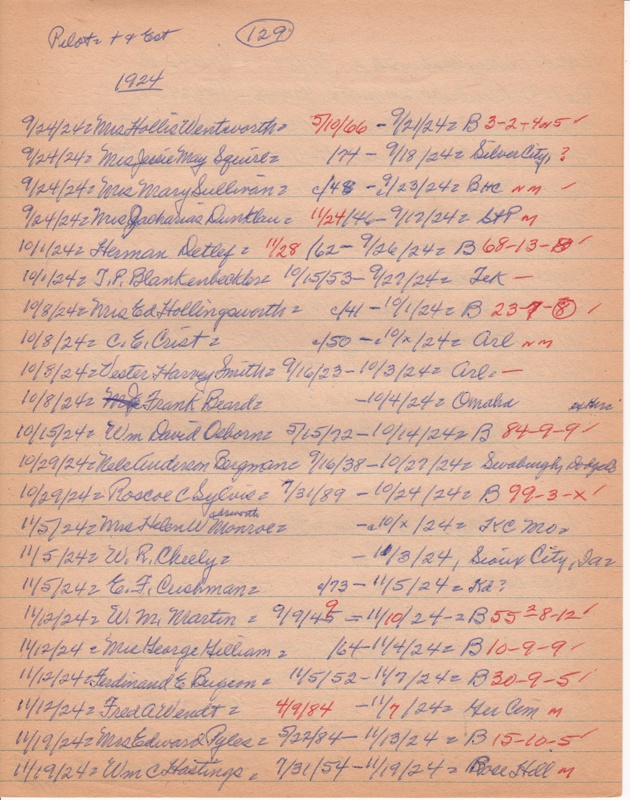 Pilot = + & Est (129)
1924
9/24/24 = Mrs Hollis Wentworth = 5/10/66 - 9/21/24 = B 3-2-4or5 ✓
9/24/24 = Mrs Jessie May Squire = /74 - 9/18/24 = Silver City, ?
9/24/24 = Mrs Mary Sullivan = c/48 - 9/23/24 = BHC NM ✓
9/24/24 = Mrs Zacharias Dunklau = 11/24/46 - 9/17/24 = StP M
10/1/24 = Herman Detlef = 11/28/62 - 9/26/24 = B 68-13-8 ✓
10/1/24 = T.P. Blankenbeckler = 10/15/53 - 9/27/24 = Tek —
10/8/24 = Mrs Ed Hollingsworth = c/41 - 10/1/24 = B 23-7-8 ✓
10/8/24 = C. E. Crist = c/50 - c10/x/24 = Arl NM
10/8/24 = Vester Harvey Smith = 9/16/23 - 10/3/24 = Arl = —
10/8/24 = Frank Beard = -10/4/24 = Omaha
10/15/24 = Wm David Osborn = 5/15/72 - 10/14/24 = B 84-9-9 ✓
10/29/24 = Nels Anderson Bergman = 9/16/38 - 10/27/24 = Swaburgh, Dodge Co
10/29/24 = Roscoe C Sylvis = 7/31/89 - 10/24/24 = B 99-3-x ✓
11/5/24 = Mrs Helen Wadsworth Monroe = -c10/x/24 = KC Mo =
11/5/24 = W. R. Cheely = - 11/3/24, Sioux City, Ia =
11/5/24 = E. F. Cushman = c/73 - 11/5/24 = Kd ?
11/12/24 = W. M. Martin = 9/9/45 9 = 11/10/24 = B 55-8-12 ✓
11/12/24 = Mrs George Gilliam = /64 - 11/4/24 = B 10-9-9 ✓
11/12/24 = Ferdinand E Bugeon = 11/5/52 - 11/7/24 = B 30-9-5 ✓
11/12/24 = Fred A Wendt = 4/9/84 - 11/7/24 = Ger Cem M
11/19/24 = Mrs Edward Pyles = 5/22/84 - 11/13/24 = B 15-10-5 ✓
11/19/24 = Wm C Hastings = 7/31/54 - 11/19/24 = Rose Hill M